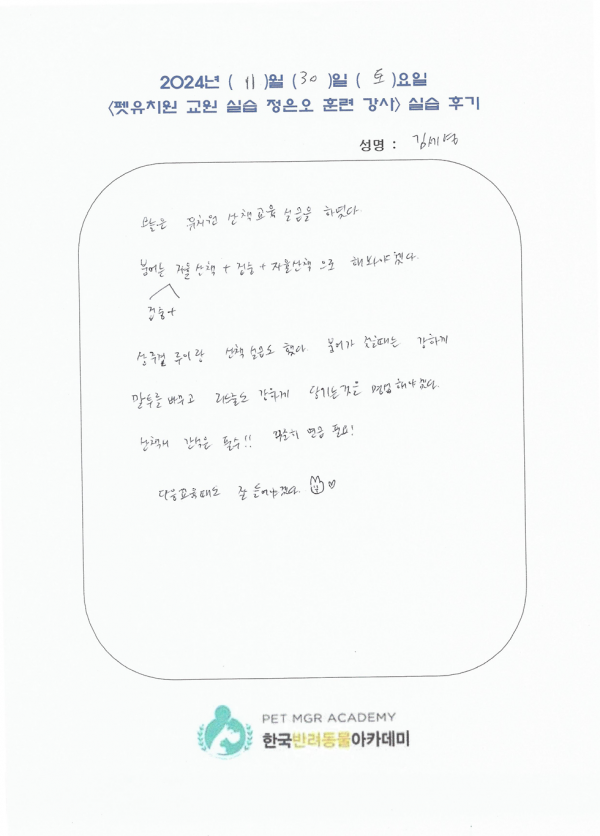 2024년 ( 11 )월 (30 )일 ( 토 )요일
<펫유치원 교원 실습 정은오 훈련 강사> 실습 후기
성명 : 김세영
오늘은 유치원 산책교육 실습을 하였다.
붐어는 자율산책 + 집중 + 자율산책 으로 해봐야겠다.
집중+
루이랑 산책 실습도 했다. 붐어가 짖을때는 강하게
말투를 바꾸고 리드줄도 강하게 당기는것을 연습해야겠다.
산책시 간식은 필수!! 꾸준히 연습 필요!
다음교육때도 잘 들어야겠다. ♡
PET MGR ACADEMY
한국반려동물아카데미